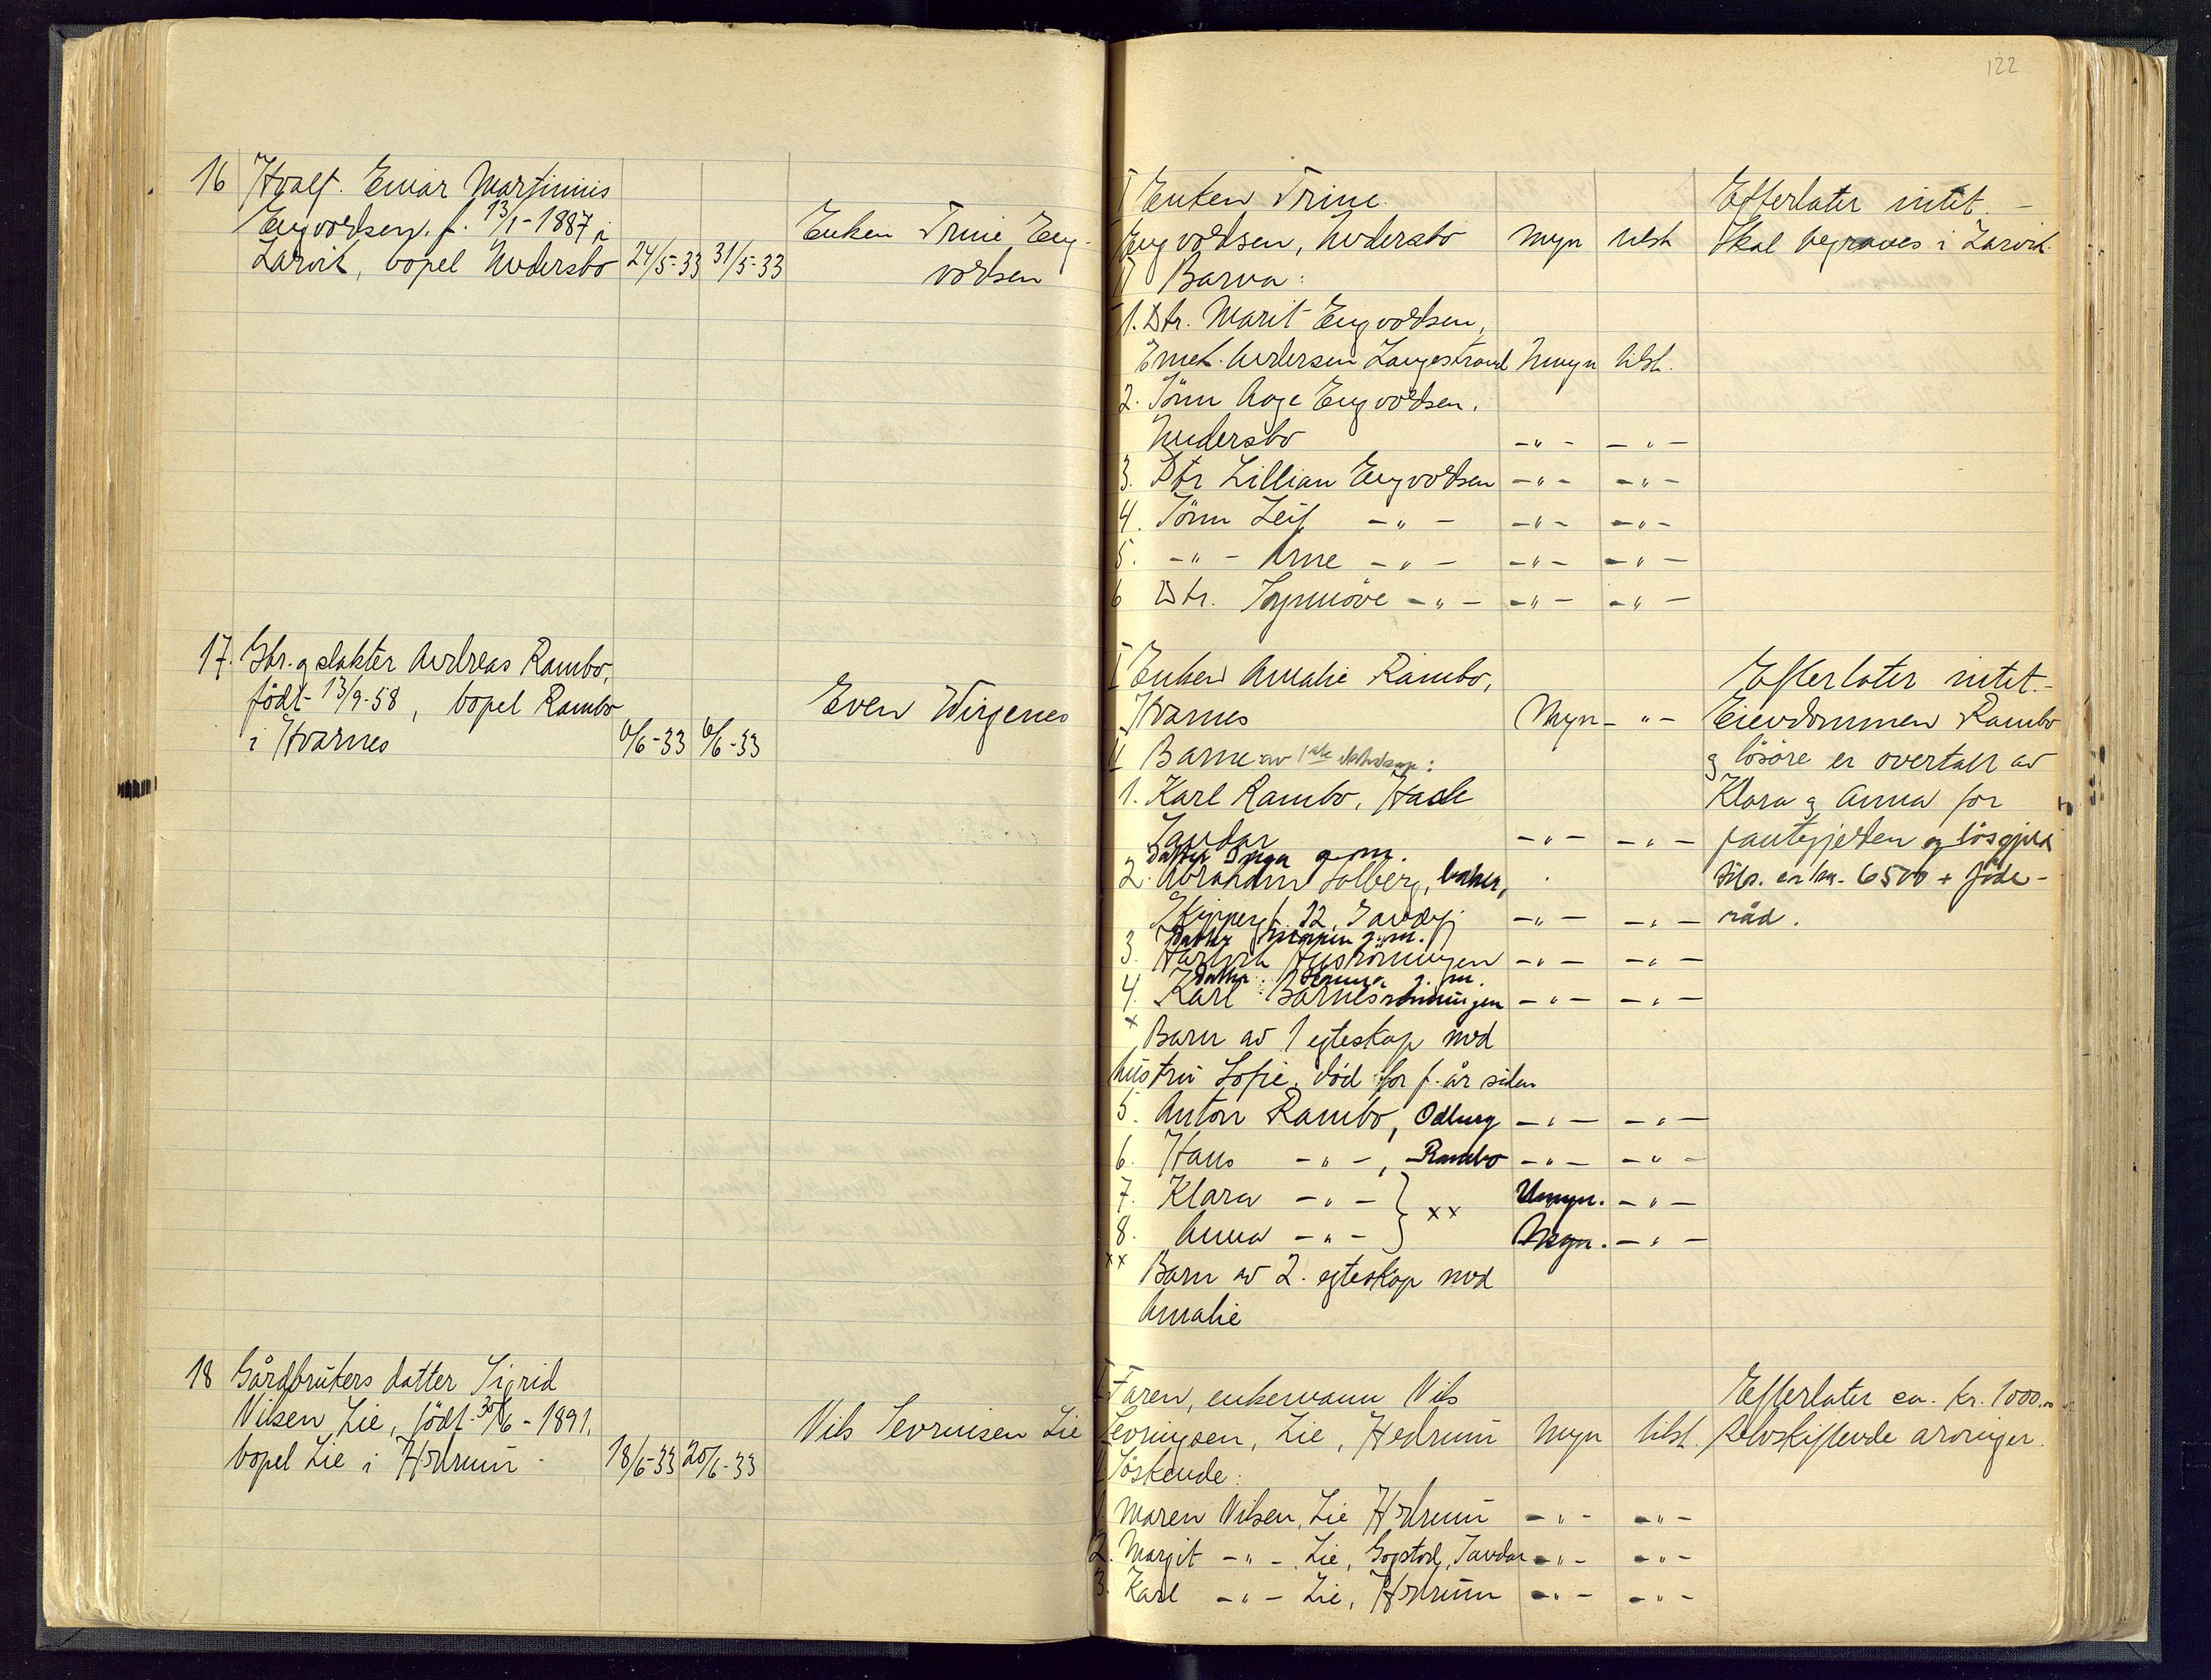 122
16 Hvalf. Einar Martinius
Engvoldsen. f. 13/1-1887 i
Larvik, bopel Undersbo 24/5-33 31/5-33
Enken Trine Eng-
voldsen
I Enken Trine
Engvoldsen, Undersbo Myn tilst.
II Barna:
1. Dtr. Marit Engvoldsen,
Andersen Langestrand Umyn tilst.
2. Sönn Aage Engvoldsen.
Undersbo -"- -"-
3. Dtr Lillian Engvoldsen -"- -"-
4. Sönn Leif -"- -"- -"-
5. -"- Arne -"- -"- -"-
6 Dtr. Synnöve -"- -"- -"-
Efterlater intet. -
Skal begraves i Larvik.
17. Gbr. og slakter Andreas Rambo,
födt 13/9-58, bopel Rambo
i Hvarnes 6/6-33 6/6-33
Even Virgenes
I Enken Amalie Rambo,
Hvarnes Myn -"-
II Barne av 1ste ekteskap:
1. Karl Rambo, Hasle
Sandar -"- -"-
datter Inga g. m.
2. Abraham Solberg, baker,
12, Sandefj. -"- -"-
3 Datter g. m.
-"- -"-
datter Hanna g. m.
4. Karl Barnesrönningen -"- -"-
x Barn av 1 egteskap med
hustru Sofie, död for f. år siden
5. Anton Rambo, Odberg -"- -"-
6. Hans -"-, Rambo -"- -"-
7. Klara -"- } xx Umyn. -"-
8. Anna -"- Myn. -"-
xx Barn av 2. egteskap med
Amalie
Efterlater intet.-
Eiendommen Rambo
og lösöre er overtatt av
Klara og Anna for
pantegjelden og lösgjeld
tils. ca kr. 6500 + föde-
råd.
18 Gårdbrukers datter Sigrid
Nilsen Lie, födt 30/6-1891,
bopel Lie i Hedrum 18/6-33 20/6-33
Nils Sevrinsen Lie
I Faren, enkemann Nils
Sevrinsen, Lie, Hedrum Myn tilst.
II Söskende:
1. Maren Nilsen, Lie Hedrum -"- -"-
2. Margit -"- Lie, Gogstad, Sandar -"- -"-
3. Karl -"- Lie, Hedrum -"- -"-
Efterlater ca. kr. 1000.00
selvskiftende arvinger.